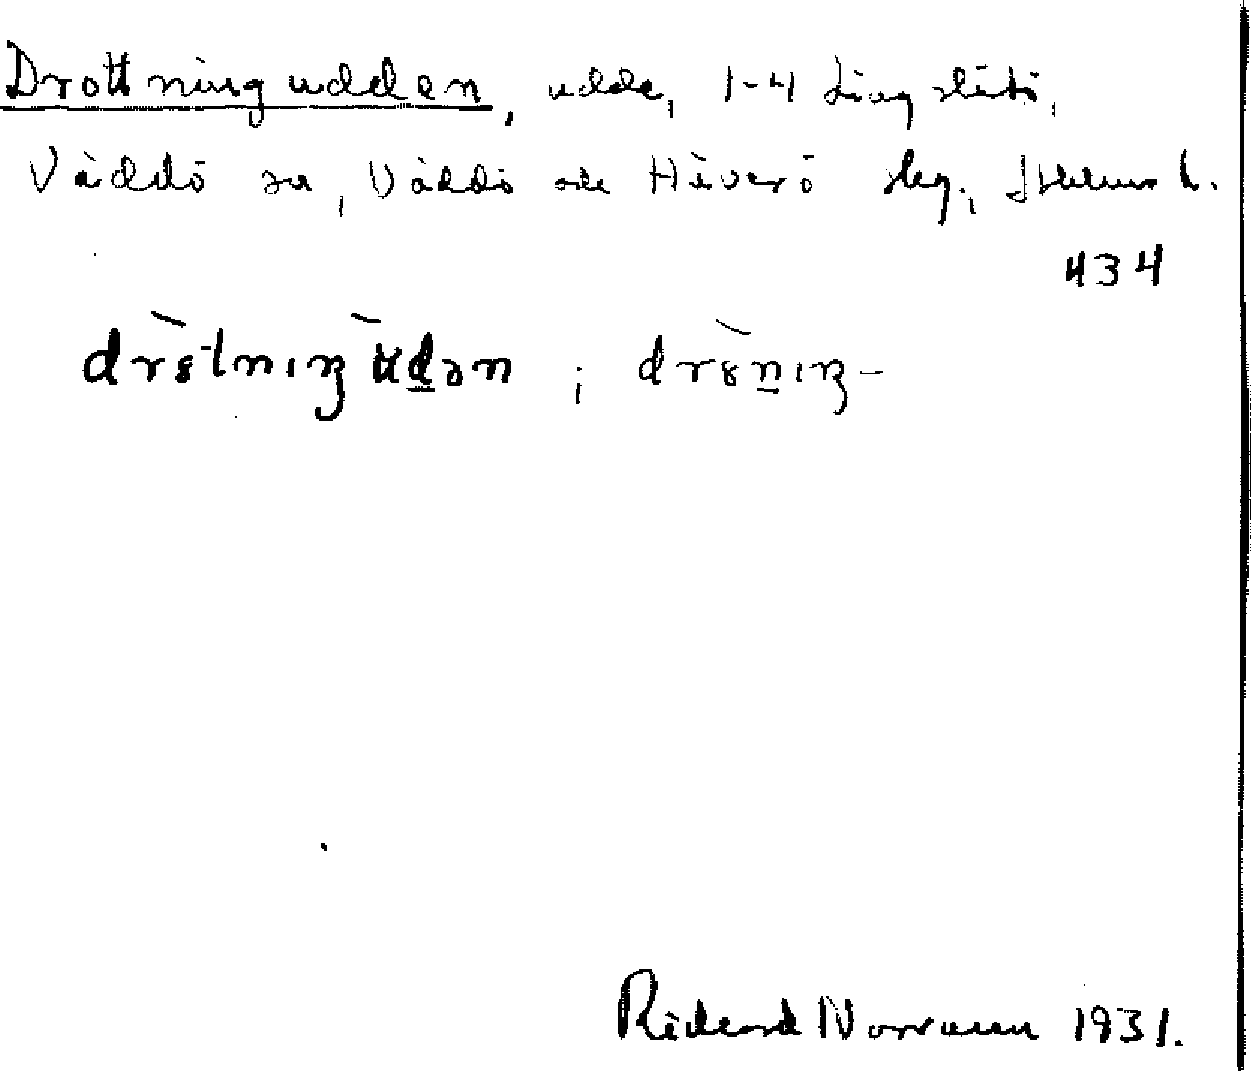 Drottningudden, udde, 1-4 Långslätö,
Väddö sn, Väddö och Häverö slg., Stockholms l.
434
dr̀ɞtnıŋ ùdən ; dr̀ɞnıŋ-
Rickard Norrman 1931.